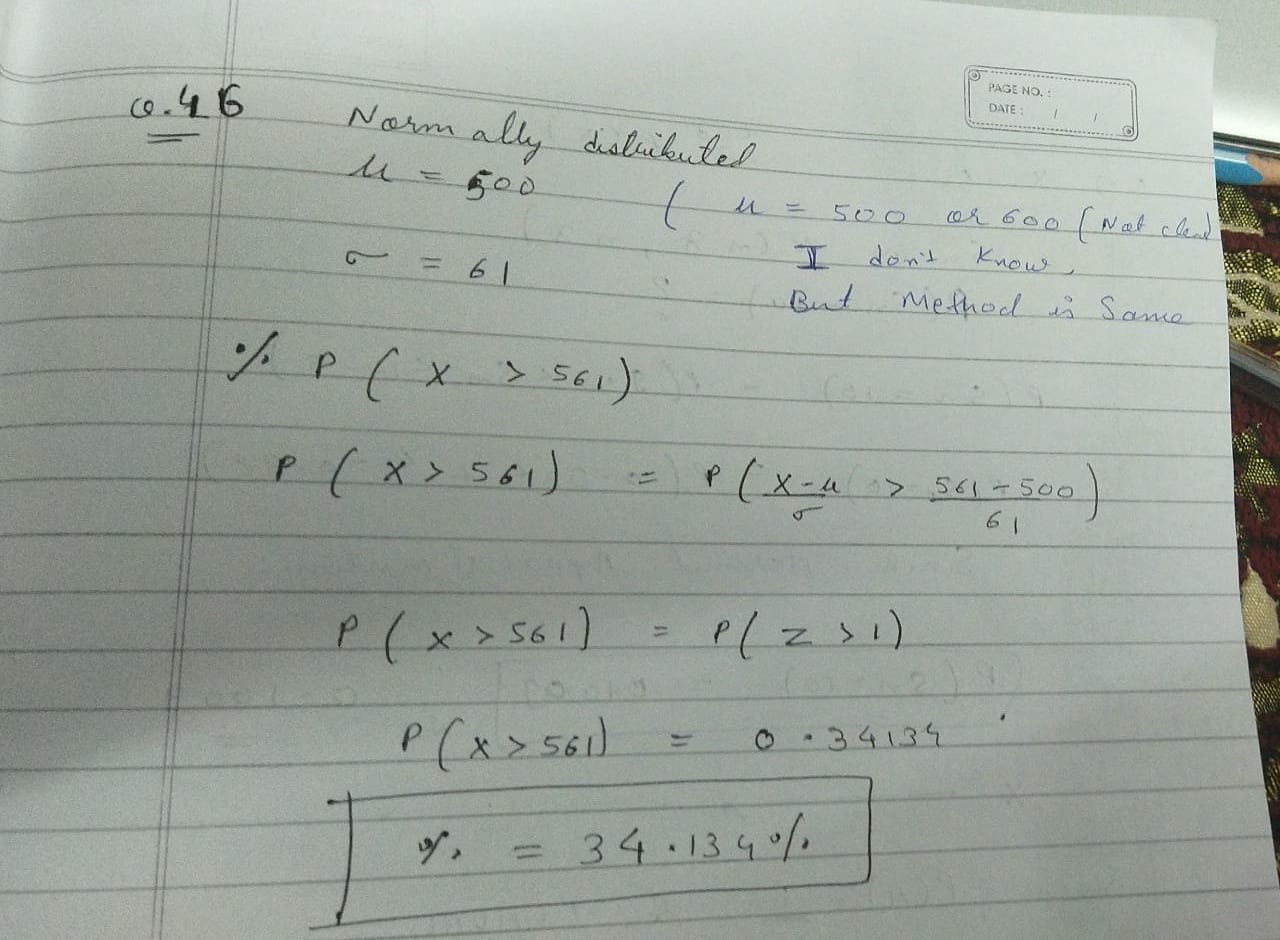 Q.46
PAGE NO. :
DATE : / /
Normally distributed
μ = 500 ( μ = 500 or 600 ( Not clear
σ = 61 I don't know,
But Method is Same
% P ( X > 561)
P ( X > 561) = P ( X-μ/σ > 561-500/61 )
P ( X > 561) = P( Z > 1)
P ( X > 561) = 0.34134
% = 34.134%